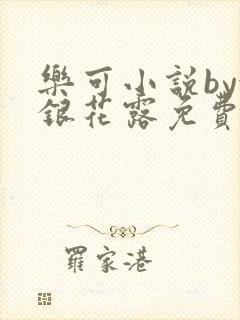 樂可小說by
銀花露免費
羅家港